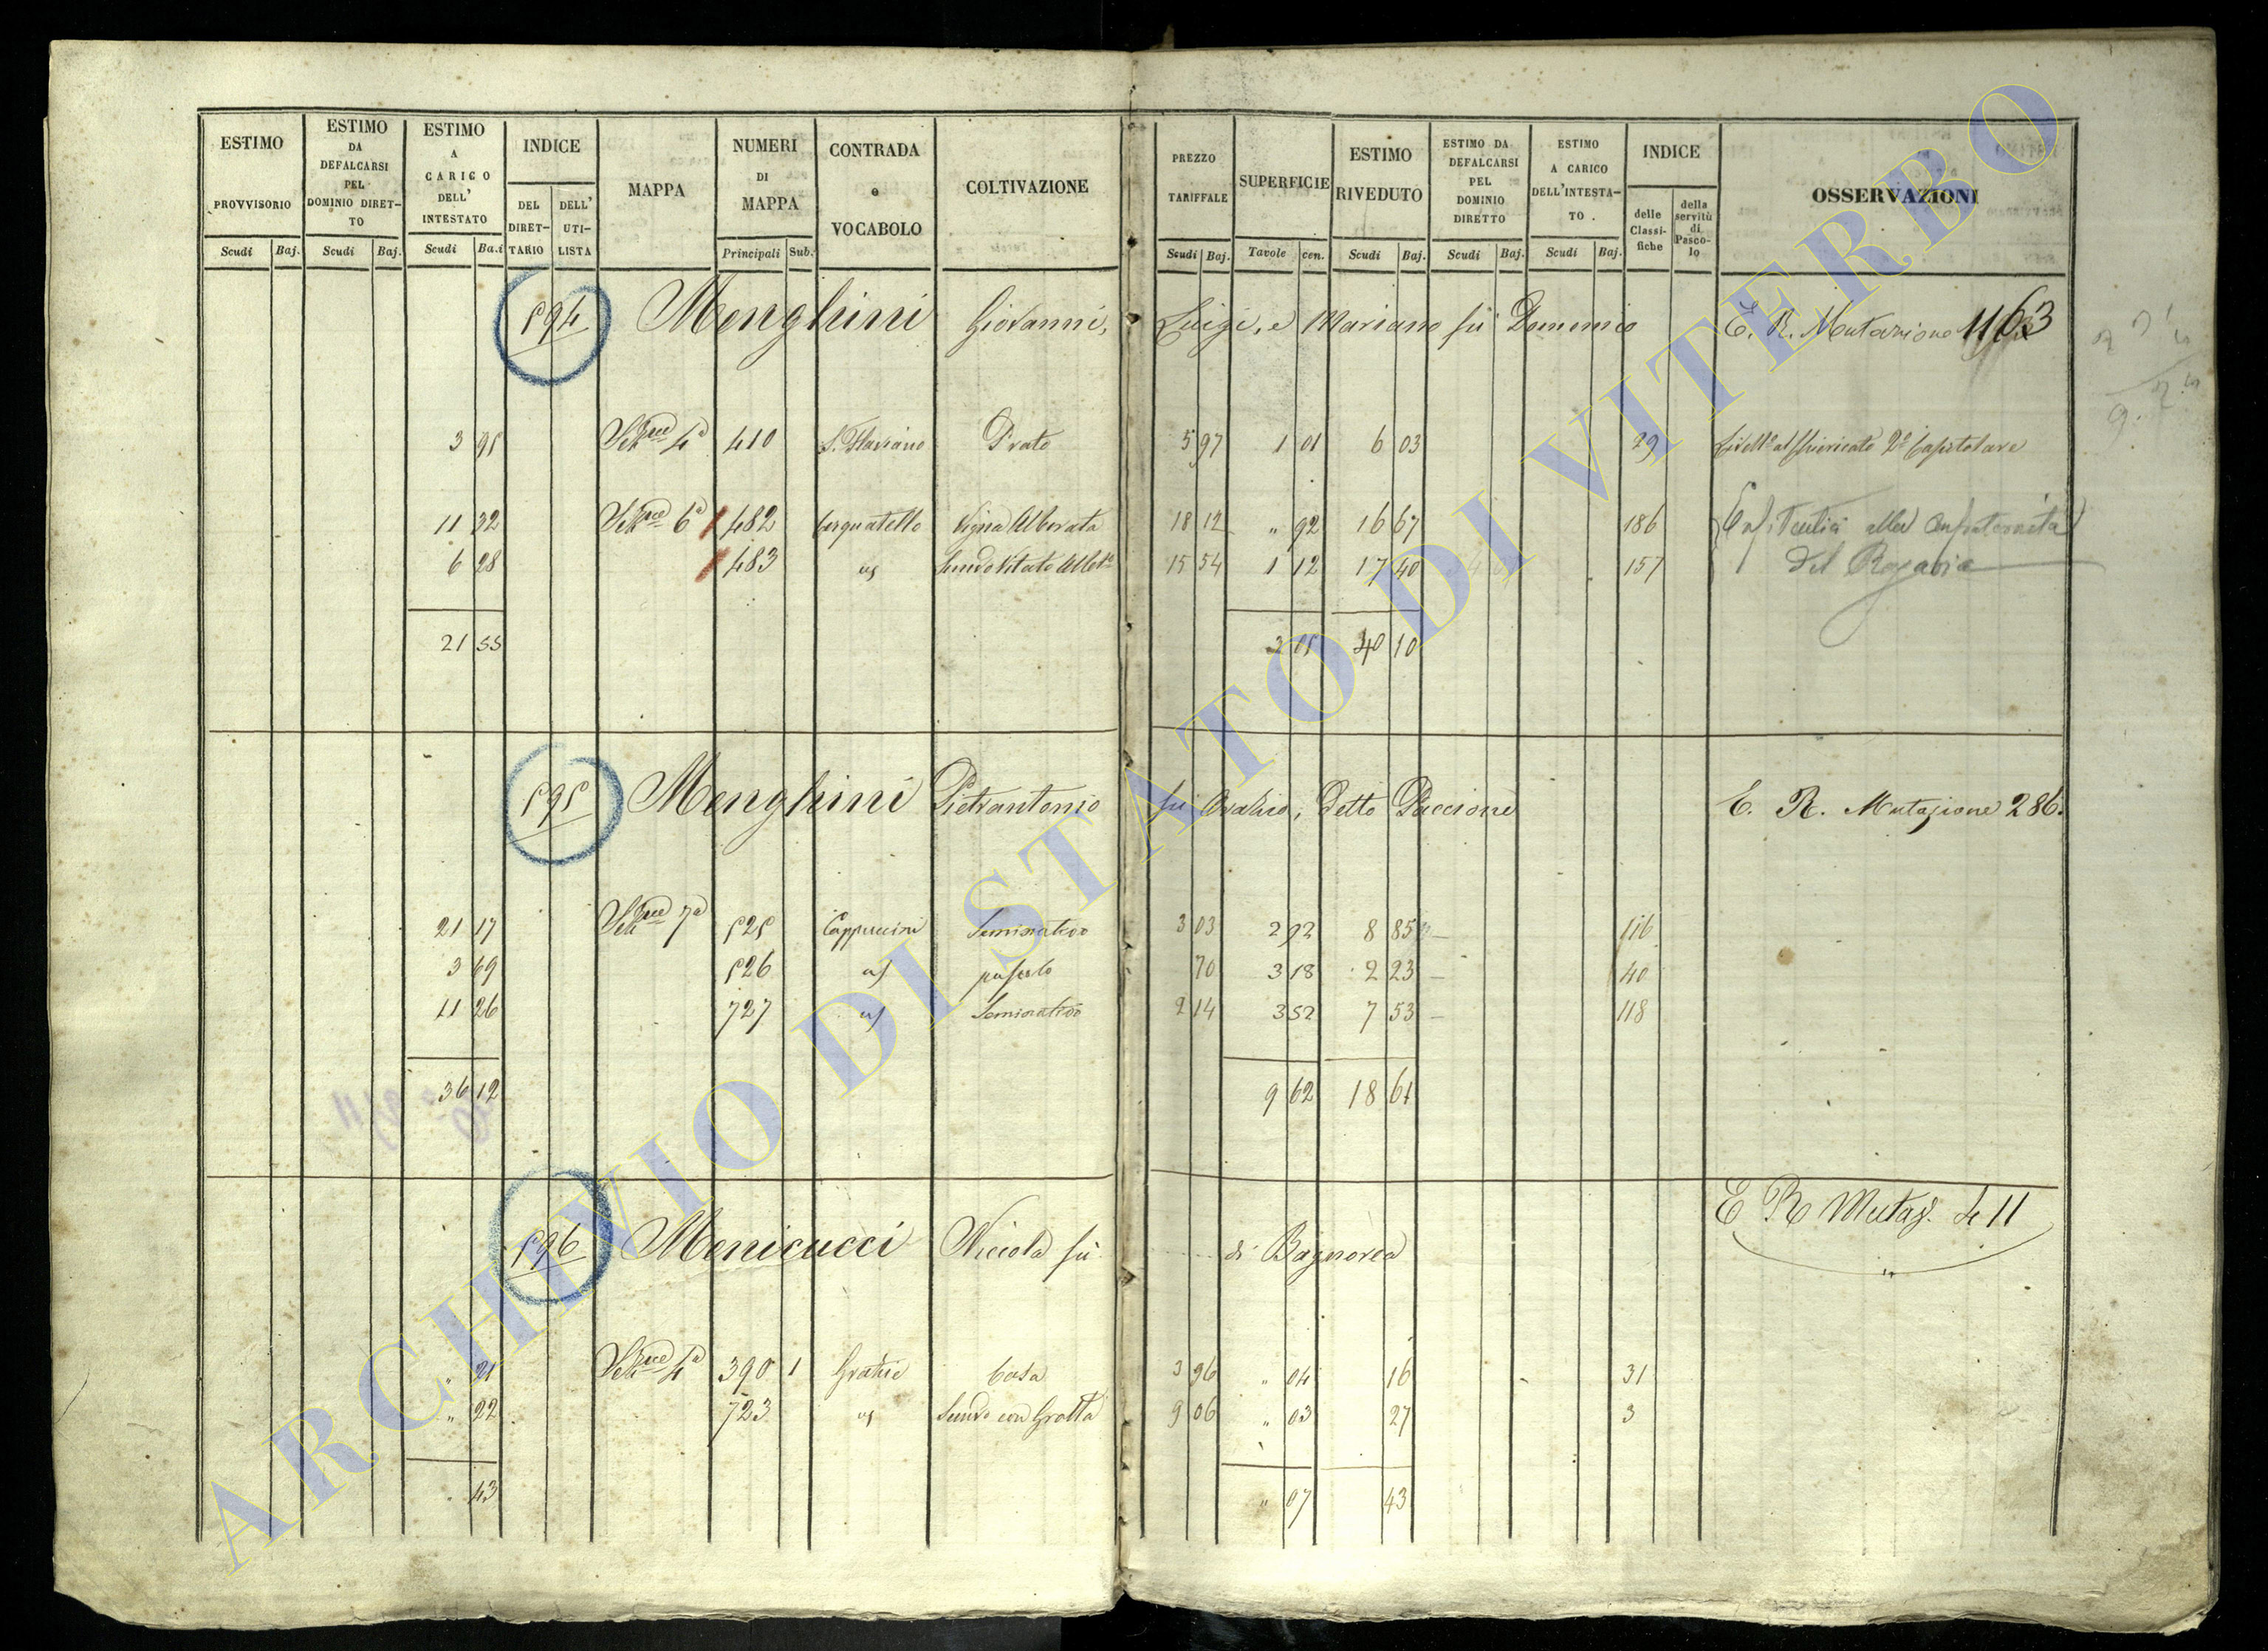 ESTIMO PROVVISORIO
Scudi Baj.
ESTIMO DA DEFALCARSI PEL DOMINIO DIRET-TO
Scudi Baj.
ESTIMO A CARICO DELL' INTESTATO
Scudi Ba.i
INDICE
DEL DIRET-TARIO
DELL' UTI-LISTA
MAPPA
NUMERI DI MAPPA
Principali Sub.
CONTRADA e VOCABOLO
COLTIVAZIONE
PREZZO TARIFFALE
Scudi Baj.
SUPERFICIE
Tavole cen.
ESTIMO RIVEDUTO
Scudi Baj.
ESTIMO DA DEFALCARSI PEL DOMINIO DIRETTO
Scudi Baj.
ESTIMO A CARICO DELL'INTESTA-TO.
Scudi Baj.
INDICE
delle Classi-fiche
della servitù di Pasco-lo
OSSERVAZIONI
594 Menghini Giovanni, Luigi, e Mariano fù Domenico E. R. Mutazione 1163
3 95 Sez.ne 4a 410 S. Flaviano Prato 5 97 1 01 6 03 29
11 32 Sez.ne 6a 482 Vigna Alberata 18 12 " 92 16 67 186 Enfiteutici alla Confraternita
6 28 483 15 54 1 12 17 40 157 del Rosario
21 55 3 05 40 10
595 Menghini Pietrantonio fù detto Paccione E. R. Mutazione 286.
21 17 Sez.ne 7a 525 Cappuccini Seminativo 3 03 2 92 8 85 116
3 69 526 pascolo 70 3 18 2 23 40
11 26 727 Seminativo 2 14 3 52 7 53 118
36 12 9 62 18 61
E R Mutaz. 411
596 Menicucci Niccola fù di Bagnorea
" 21 Sez.ne 4a 390 1 Grazie Casa 3 96 " 04 16 31
" 22 723 con Grotta 9 06 " 03 27 3
43 " 07 43
ARCHIVIO DI STATO DI VITERBO